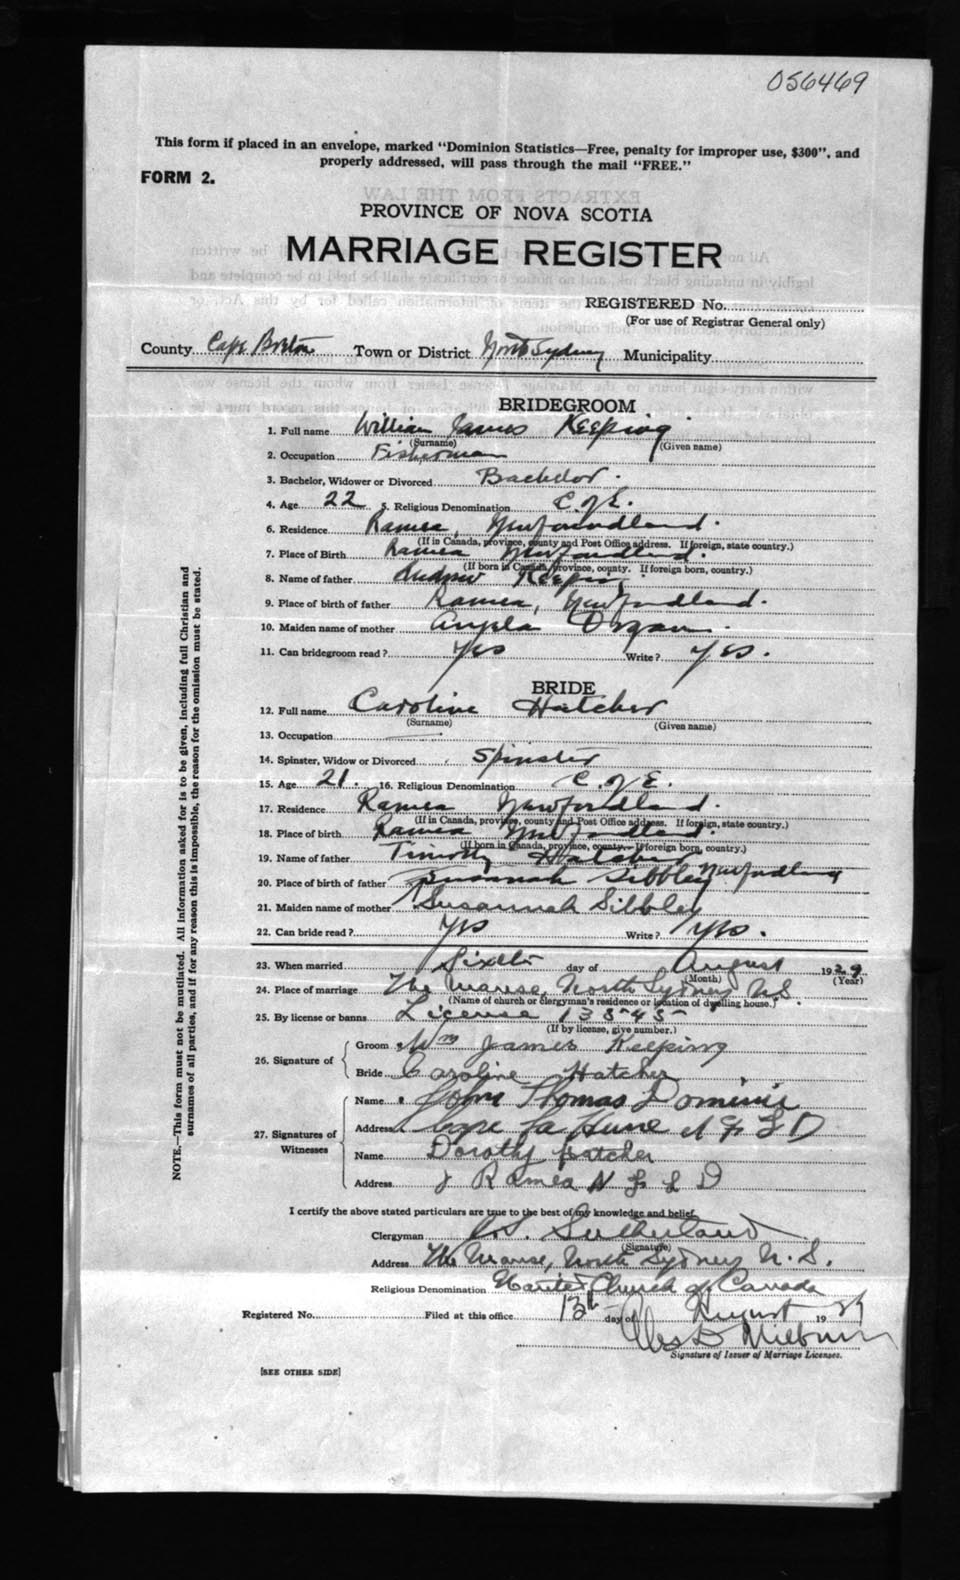 056469
This form if placed in an envelope, marked "Dominion Statistics—Free, penalty for improper use, $300", and
properly addressed, will pass through the mail "FREE."
FORM 2.
PROVINCE OF NOVA SCOTIA
MARRIAGE REGISTER
REGISTERED No.
(For use of Registrar General only)
County Cape Breton Town or District North Sydney Municipality
BRIDEGROOM
1. Full name William James Keeping
(Surname) (Given name)
2. Occupation Fisherman
3. Bachelor, Widower or Divorced Bachelor.
4. Age 22 5. Religious Denomination C. of E.
6. Residence Ramea, Newfoundland.
(If in Canada, province, county and Post Office address. If foreign, state country.)
7. Place of Birth Ramea Newfoundland.
(If born in Canada, province, county. If foreign born, country.)
8. Name of father Andrew Keeping
9. Place of birth of father Ramea, Newfoundland.
10. Maiden name of mother Angela Organ.
11. Can bridegroom read? Yes Write? Yes.
BRIDE
12. Full name Caroline Hatcher
(Surname) (Given name)
13. Occupation
14. Spinster, Widow or Divorced Spinster
15. Age 21. 16. Religious Denomination C. of E.
17. Residence Ramea Newfoundland.
(If in Canada, province, county and Post Office address. If foreign, state country.)
18. Place of birth Ramea Newfoundland.
(If born in Canada, province, county. If foreign born, country.)
19. Name of father Timothy Hatcher
20. Place of birth of father Susannah Sibbley Newfoundland
21. Maiden name of mother Susannah Sibbley
22. Can bride read? Yes Write? Yes.
23. When married Sixth day of August 1929
(Month) (Year)
24. Place of marriage The Manse, North Sydney N.S.
(Name of church or clergyman's residence or location of dwelling house.)
25. By license or banns License 13545
(If by license, give number.)
26. Signature of Groom Wm James Keeping
Bride Caroline Hatcher
27. Signatures of Witnesses
Name John Thomas Dominie
Address Cape La Hune N F L D
Name Dorothy Hatcher
Address Ramea N F L D
I certify the above stated particulars are true to the best of my knowledge and belief.
Clergyman Sutherland
(Signature)
Address The Manse, North Sydney N. S.
Religious Denomination United Church of Canada
Registered No. Filed at this office 13th day of August 1929
Milburn
Signature of Issuer of Marriage Licenses.
[SEE OTHER SIDE]
NOTE.—This form must not be mutilated. All information asked for is to be given, including full Christian and
surnames of all parties, and if for any reason this is impossible, the reason for the omission must be stated.